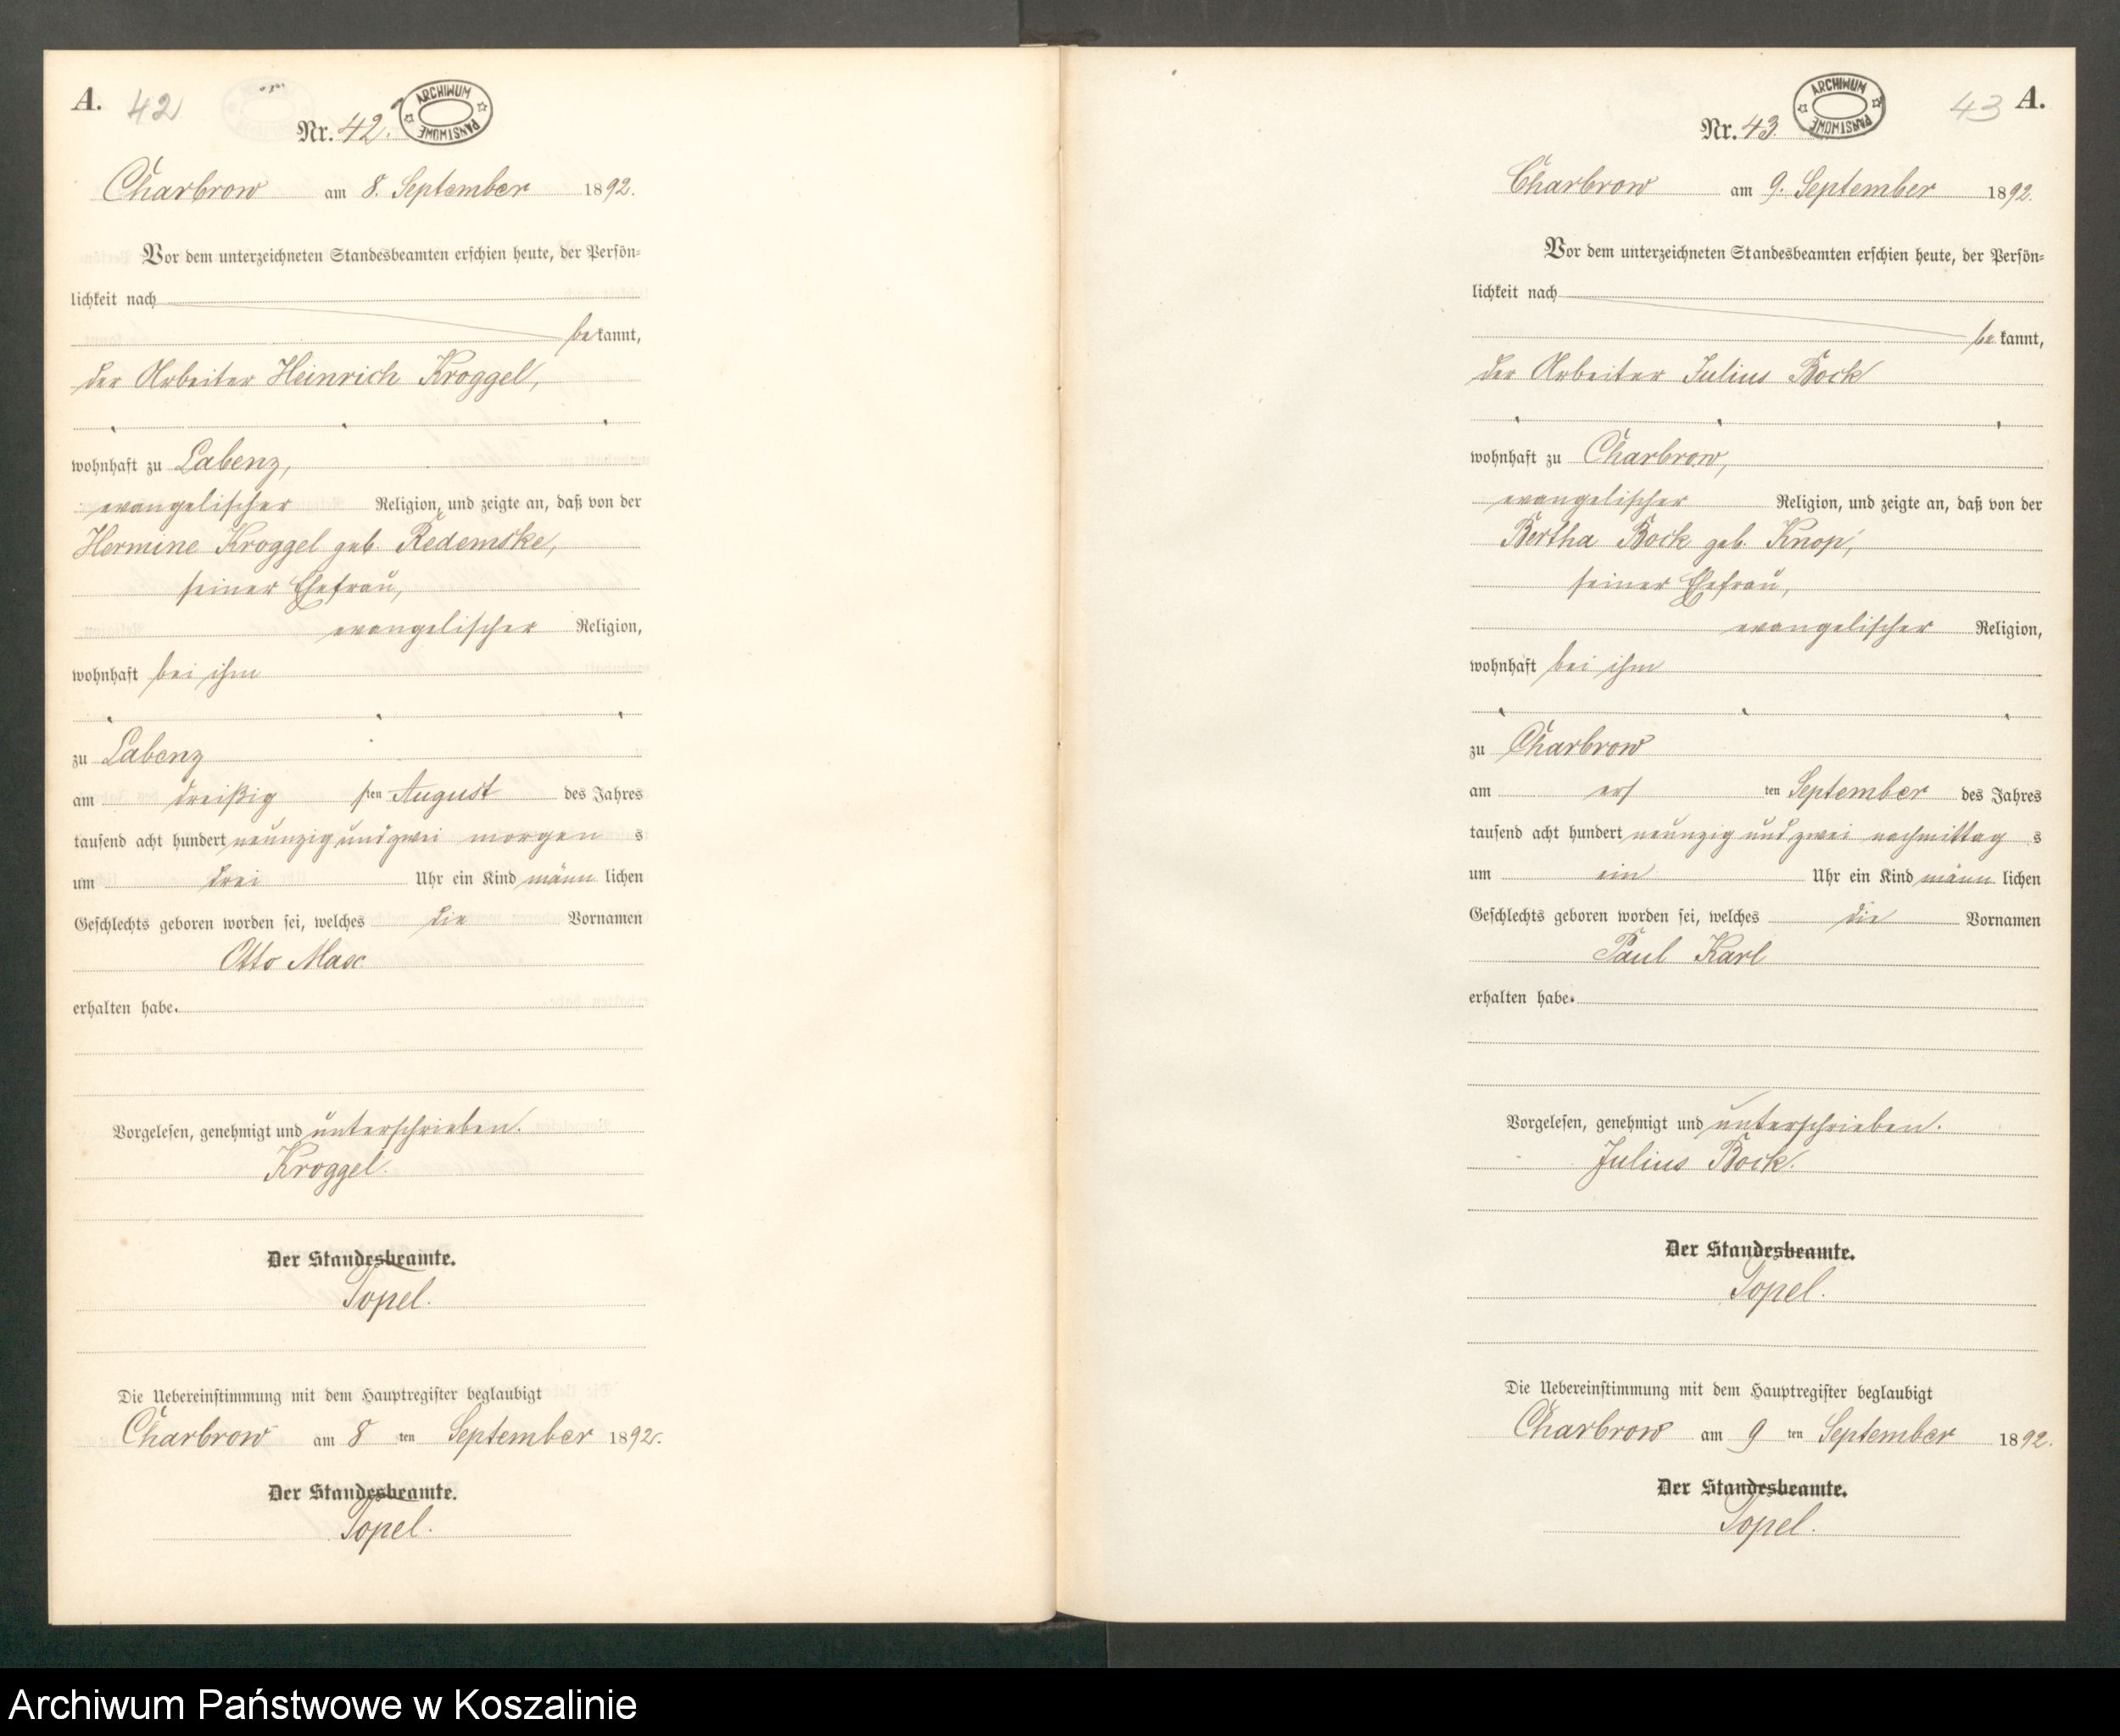 A. 42
Nr. 42.
ARCHIWUM PAŃSTWOWE
Charbrow am 8. September 1892.
Vor dem unterzeichneten Standesbeamten erschien heute, der Persön=
lichkeit nach
bekannt,
der Arbeiter Heinrich Kroggel,
wohnhaft zu Labenz,
evangelischer Religion, und zeigte an, daß von der
Hermine Kroggel geb. Redemske,
seiner Ehefrau,
evangelischer Religion,
wohnhaft bei ihm
zu Labenz
am dreißigsten August des Jahres
tausend acht hundert neunzig und zwei morgens
um drei Uhr ein Kind männlichen
Geschlechts geboren worden sei, welches die Vornamen
Otto Max
erhalten habe.
Vorgelesen, genehmigt und unterschrieben.
Kroggel.
Der Standesbeamte.
Topel.
Die Uebereinstimmung mit dem Hauptregister beglaubigt
Charbrow am 8ten September 1892.
Der Standesbeamte.
Topel.
43 A.
Nr. 43.
ARCHIWUM PAŃSTWOWE
Charbrow am 9. September 1892.
Vor dem unterzeichneten Standesbeamten erschien heute, der Persön=
lichkeit nach
bekannt,
der Arbeiter Julius Bock
wohnhaft zu Charbrow,
evangelischer Religion, und zeigte an, daß von der
Bertha Bock geb. Knop,
seiner Ehefrau,
evangelischer Religion,
wohnhaft bei ihm
zu Charbrow
am ersten September des Jahres
tausend acht hundert neunzig und zwei nachmittags
um ein Uhr ein Kind männlichen
Geschlechts geboren worden sei, welches die Vornamen
Paul Karl
erhalten habe.
Vorgelesen, genehmigt und unterschrieben.
Julius Bock.
Der Standesbeamte.
Topel.
Die Uebereinstimmung mit dem Hauptregister beglaubigt
Charbrow am 9ten September 1892.
Der Standesbeamte.
Topel.
Archiwum Państwowe w Koszalinie